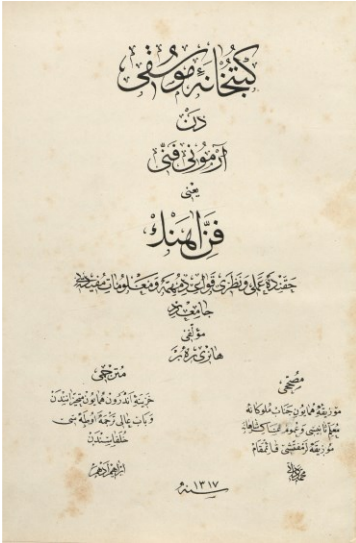 كتبخانهٔ موسقى
دن
آرمونى فنى
يعنى
فن آهنك
حقنده عملى و نظرى قواعد مهمه و معلومات مفيده يى
جامعدر
مؤلفى
هانرى ره بر
مترجمى
خزينهٔ اندرون همايون
و باب عالى ترجمه اوطه سى
خلفاسندن
ابراهيم ادهم
مصححى
موزيقهٔ همايون جناب ملوكانه
معلم
موزيقه لر مفتشى قائمقام
سنه ١٣١٧